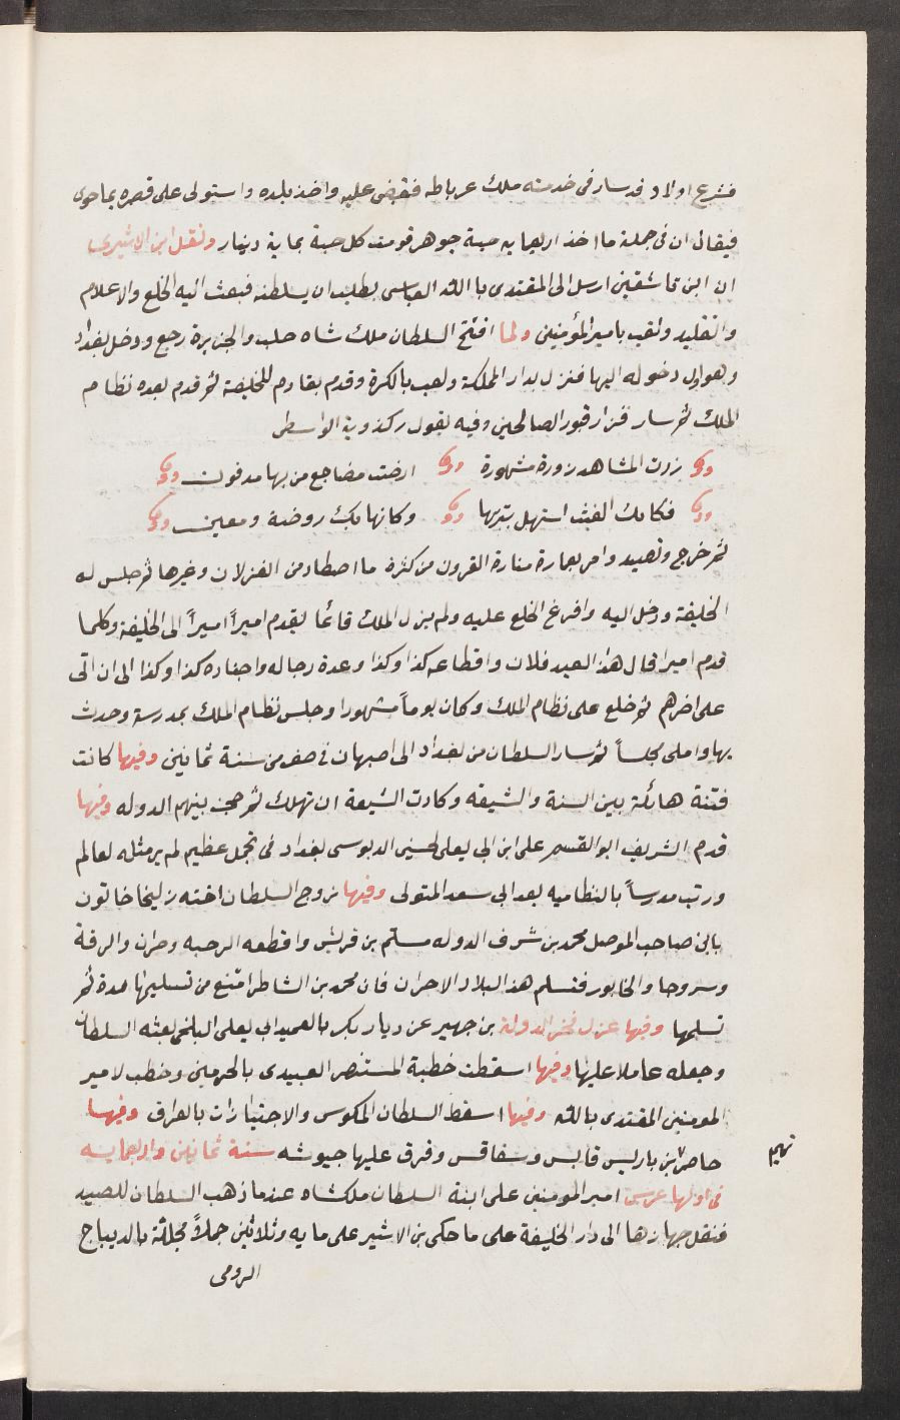 فشرع اولاد فدسار فى خدمته ملك عرباطه فقبض عليه واخذ بلده واستولى على قصره بما حوى
فيقال ان فى جملة ما اخذ اربعمايه حبة جوهر قومت كل حبة بماية دينار ونقل ابن الاثير
ان ابن تاشفين ارسل الى المقتدى بالله العباسى يطلب ان يسلطنه فبعث اليه الخلع والاعلام
والتقليد ولقب بامير المؤمنين ولما افتتح السلطان ملك شاه حلب والجزيرة رجع ودخل بغداد
وهو اول دخوله اليها فنزل بدار المملكة ولعب بالكرة وقدم تقادم للخليفة ثم قدم بعده نظام
الملك ثم سار فزار قبور الصالحين وفيه يقول ركذوية الواسطى
زرت المشاهد زورة مشهورة ارضت مضاجع من بها مدفون
فكانك الغيث استهل بتربها وكانها بك روضة ومعين
ثم خرج وتصيد وامر بعمارة منارة القرون من كثرة ما اصطاد من الغزلان وغيرها ثم جلس له
الخليفة ودخل اليه وافرغ الخلع عليه ولم يزل الملك قائما يقدم اميراً اميراً الى الخليفة وكلما
قدم اميرا قال هذا العبد فلان واقطاعه كذا وكذا وعدة رجاله واجناده كذا وكذا الى ان اتى
على اخرهم ثم خلع على نظام الملك وكان يوماً مشهورا وجلس نظام الملك بمدرسته وحدث
بها واملى مجلساً ثم سار السلطان من بغداد الى اصبهان فى صفر من سنة ثمانين وفيها كانت
فتنة هائلة بين السنة والشيعه وكادت الشيعة ان تهلك ثم حجت بينهم الدوله وفيها
قدم الشريف ابو القسم على ابن ابى يعلى الحسينى الدبوسى بغداد فى تجمل عظيم لم ير مثله لعالم
ورتب مدرساً بالنظاميه بعد ابى سعد المتولى وفيها زوج السلطان اخته زليخا خاتون
بابن صاحب الموصل محمد بن شرف الدوله مسلم بن قريش واقطعه الرحبه وحران والرقة
وسروجا والخابور فتسلم هذا البلاد الا حران فان محمد بن الشاطر امتنع من تسليمها مدة ثم
تسلمها وفيها عزل فخر الدولة بن جهير عن ديار بكر بالعميد ابى يعلى البلخى بعثه السلطان
وجعله عاملا عليها وفيها اسقطت خطبة المستنصر العبيدى بالحرمين وخطب لامير
المومنين المقتدى بالله وفيها اسقط السلطان المكوس والاجتيازات بالعراق وفيها
حاصر تميم بن باديس قابس وسفاقس وفرق عليها جيوشه سنة ثمانين واربعمايه
فى اولها عرس امير المومنين على ابنة السلطان ملكشاه عندما ذهب السلطان للصيد
فنقل جهازها الى دار الخليفة على ما حكى بن الاثير على مايه وثلاثين جملاً مجللة بالديباج
الرومى